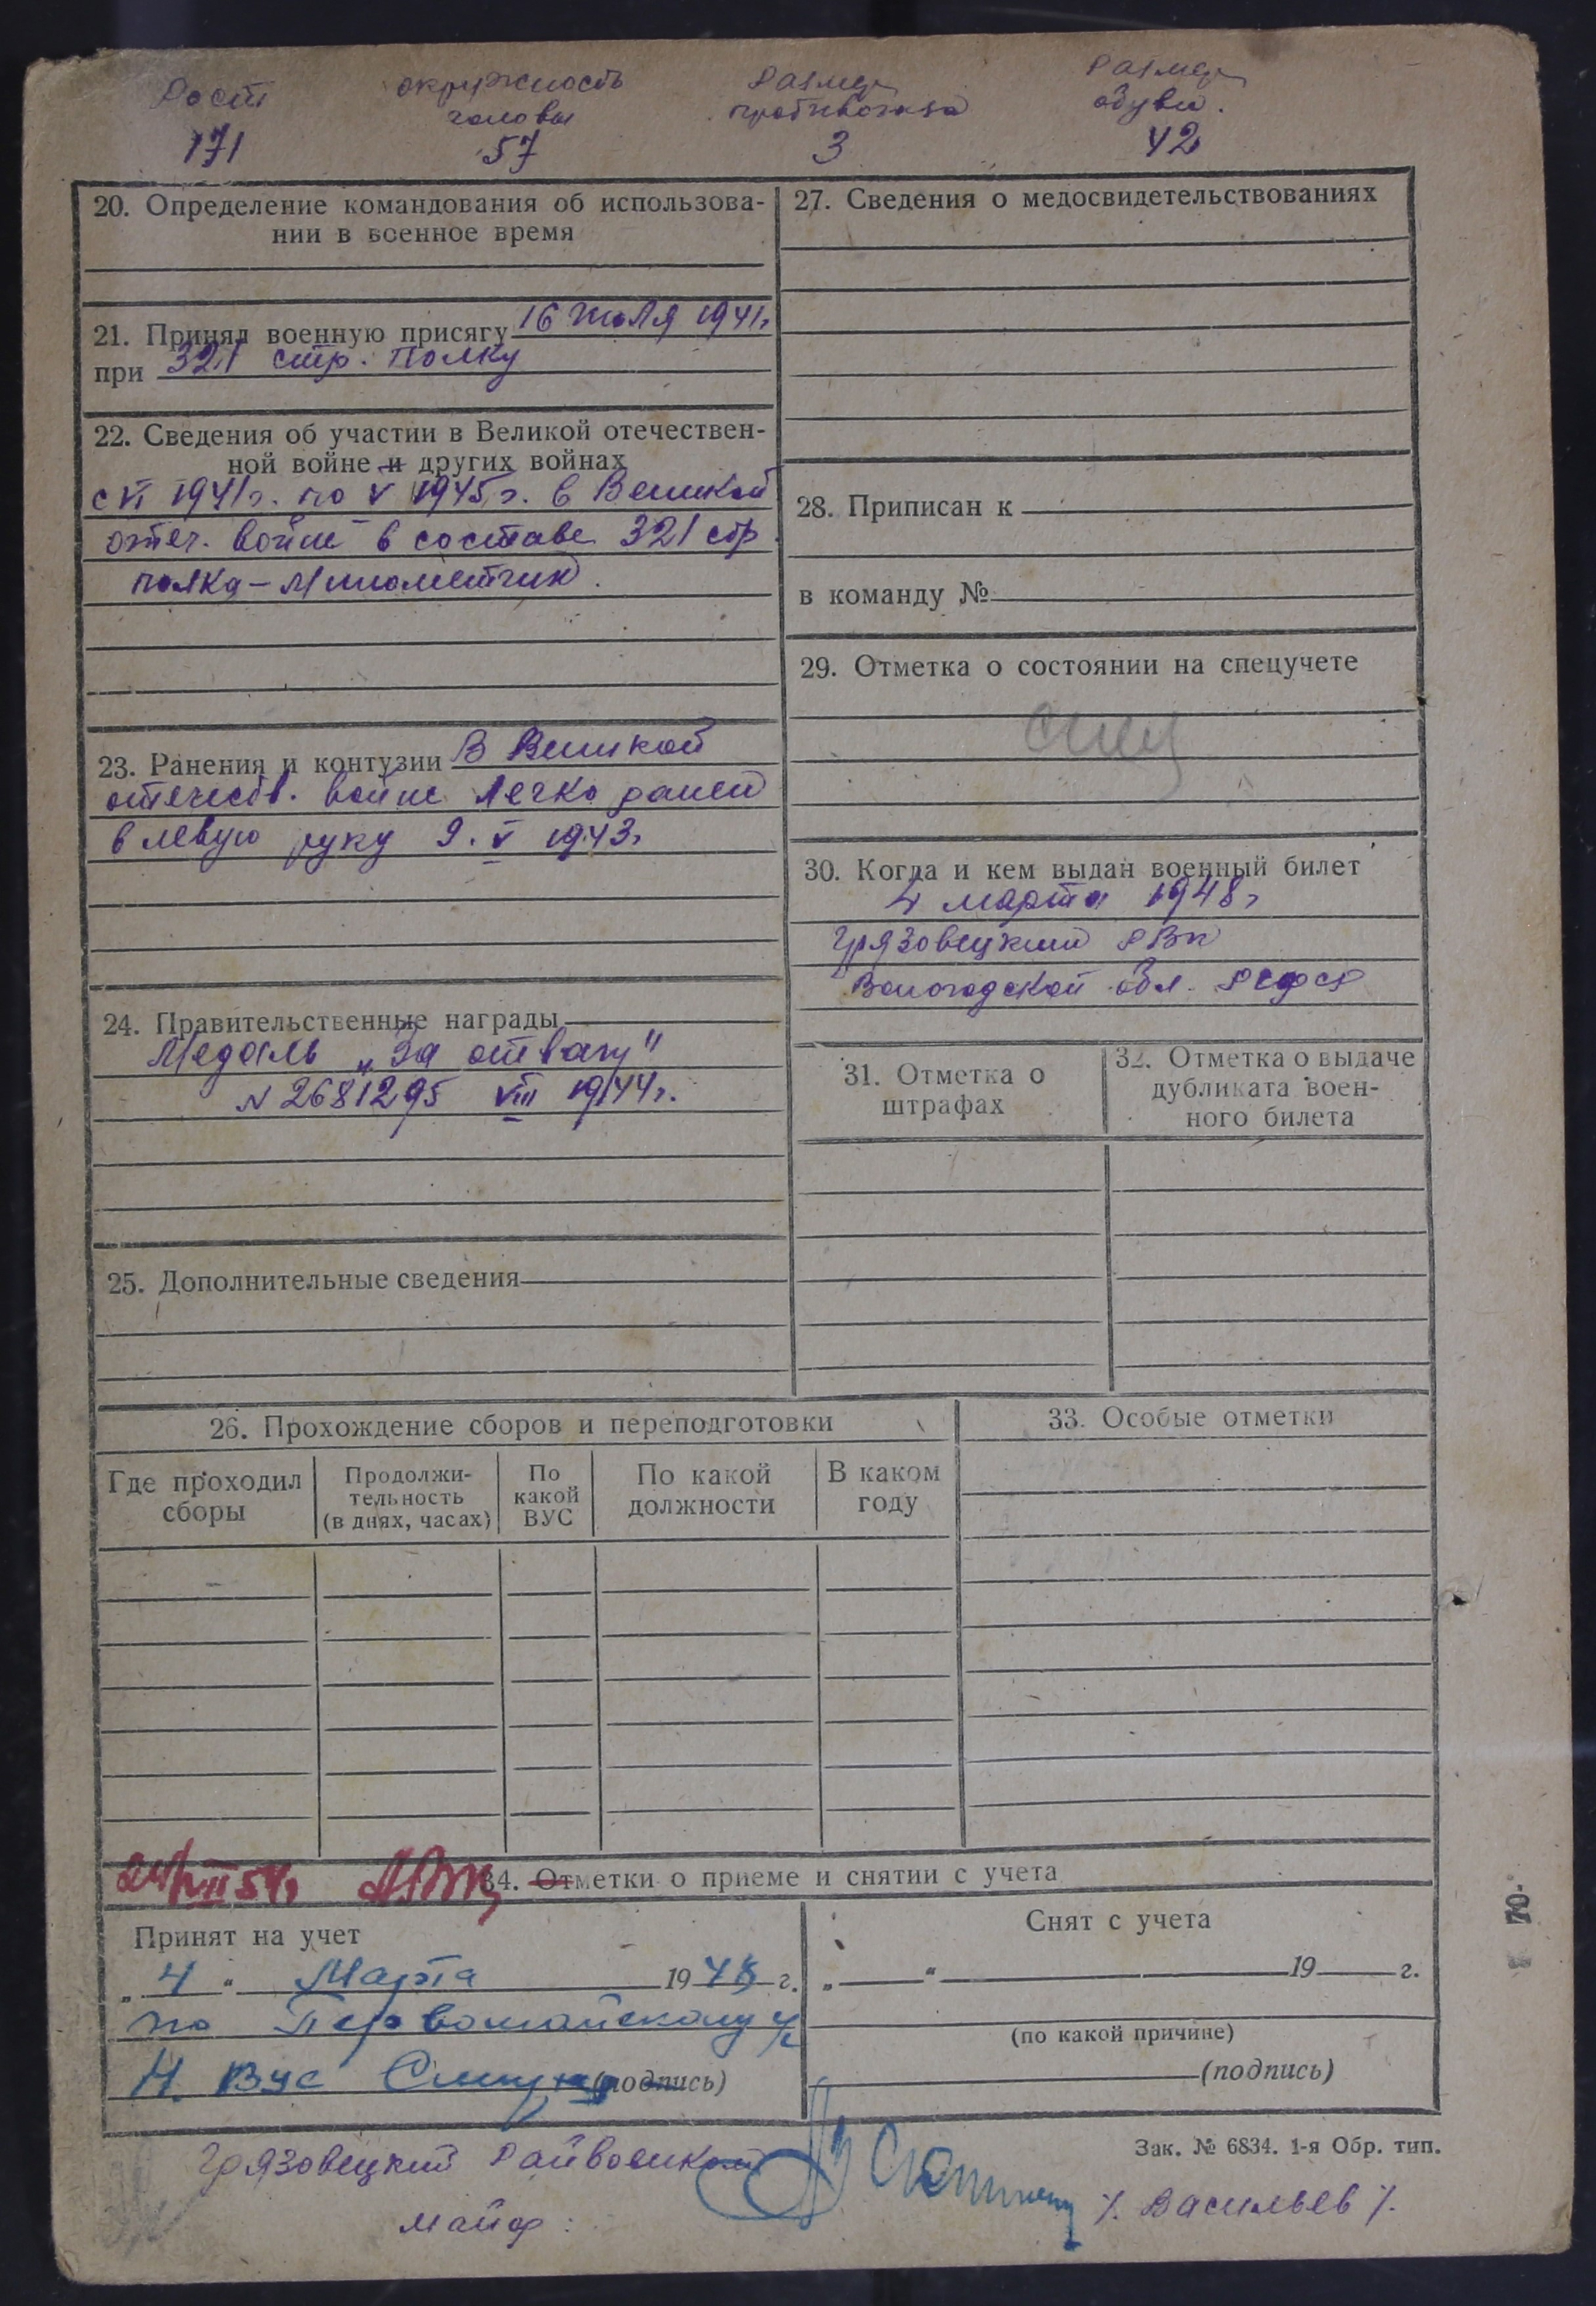 Рост
окружность головы
Размер противогаза
Размер обуви.
171
57
3
42
20. Определение командования об использова-
нии в военное время
21. Принял военную присягу 16 Июля 1941г
при 321 стр. Полку
22. Сведения об участии в Великой отечествен-
ной войне и других войнах
с VI 1941г. по V 1945г. в Великой
отеч. войне в составе 321 стр
полка - Минометчик.
23. Ранения и контузии В Великой
отечеств. войне легко ранен
в левую руку 9. V 1943г
24. Правительственные награды
Медаль „За отвагу"
N 2681295 VIII 1944г.
25. Дополнительные сведения
27. Сведения о медосвидетельствованиях
28. Приписан к
в команду №
29. Отметка о состоянии на спецучете
30. Когда и кем выдан военный билет
4 марта 1948г
Грязовецким РВК
Вологодской обл. РСФСР
31. Отметка о
штрафах
32. Отметка о выдаче
дубликата воен-
ного билета
26. Прохождение сборов и переподготовки
Где проходил
сборы
Продолжи-
тельность
(в днях, часах)
По
какой
ВУС
По какой
должности
В каком
году
33. Особые отметки
34. Отметки о приеме и снятии с учета
Принят на учет
„ 4 " Марта 1948 г.
по Первомайскому
Н. Вус (подпись)
Снят с учета
„ " 19 г.
(по какой причине)
(подпись)
Зак. № 6834. 1-я Обр. тип.
Грязовецкий Райвоенком
майор:
/. Васильев /.
70-